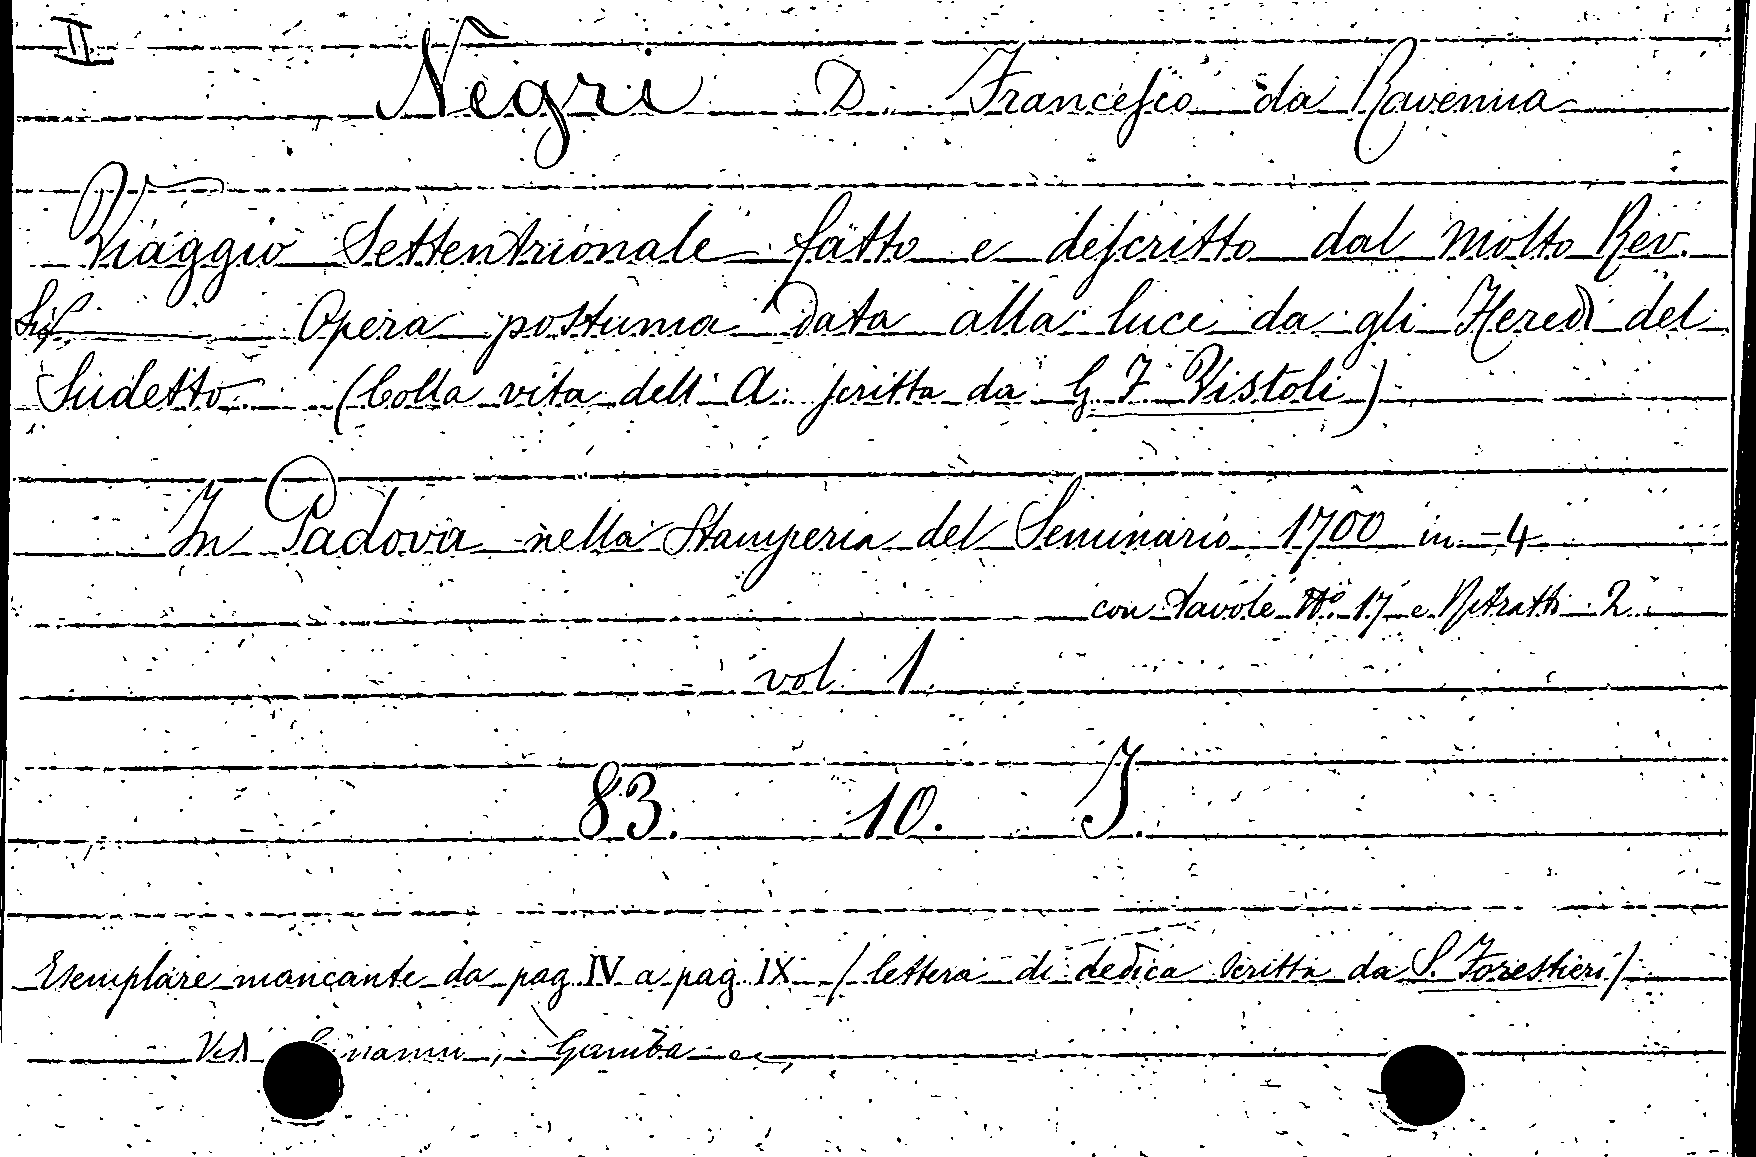 II
Negri D. Francesco da Ravenna
Viaggio Settentrionale fatto e descritto dal Molto Rev.
Sig. Opera postuma Data alla luce da gli Heredi del
Sudetto (Colla vita dell' A. scritta da G. F. Vistoli)
In Padova nella Stamperia del Seminario 1700 in-4
con Tavole No. 17 e Ritratti 2.
vol. 1.
83. 10. J.
Esemplare mancante da pag. IV a pag. IX (lettera di dedica scritta da S. Forestieri)
Ved. Gamba